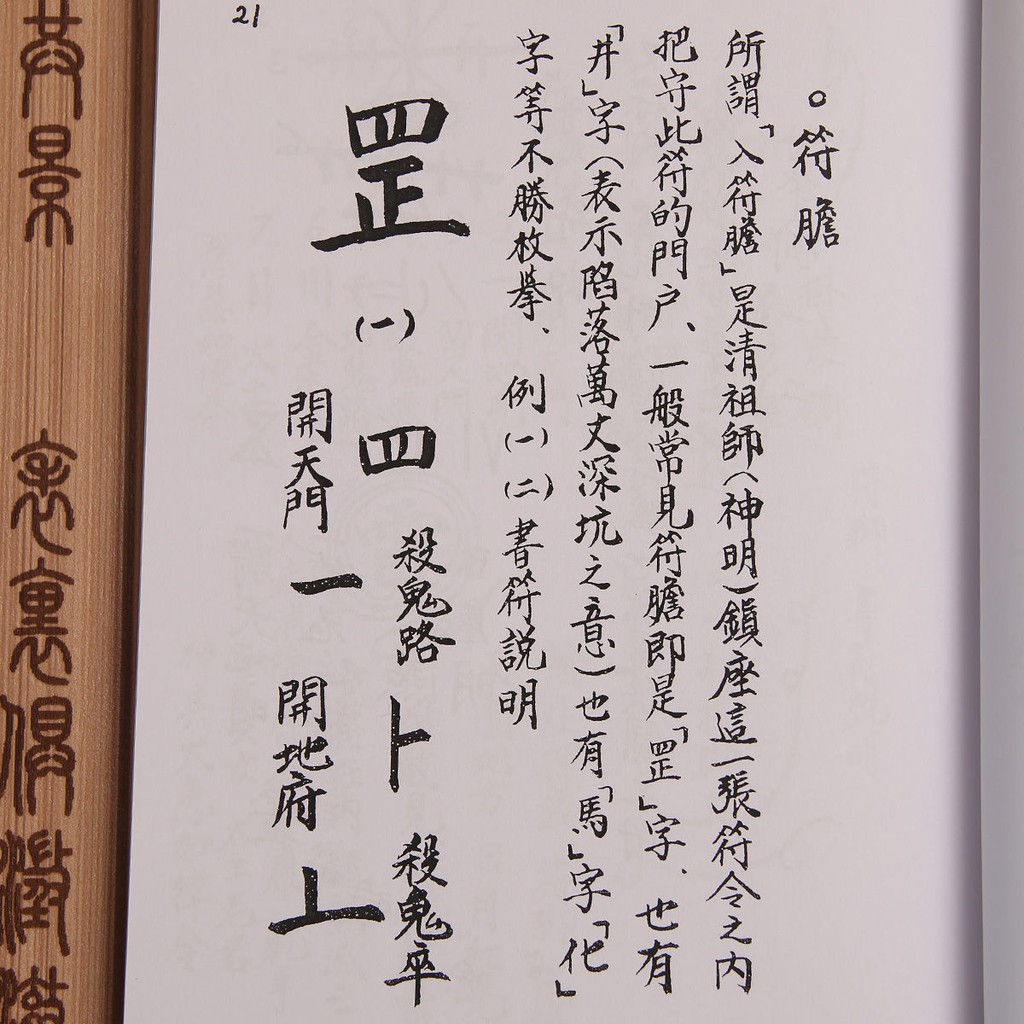 。符膽
所謂「入符膽」是清祖師(神明)鎖座這一張符令之内
把守此符的門户、一般常見符膽即是「罡」字、也有
「井」字(表示陷落萬丈深坑之意)也有「馬」字「化」
字等不勝枚舉、 例(一)(二)書符說明
罡 (一)
四 殺鬼路 卜 殺鬼卒
開天門 一 開地府 丄
21
景
表裏俱澄